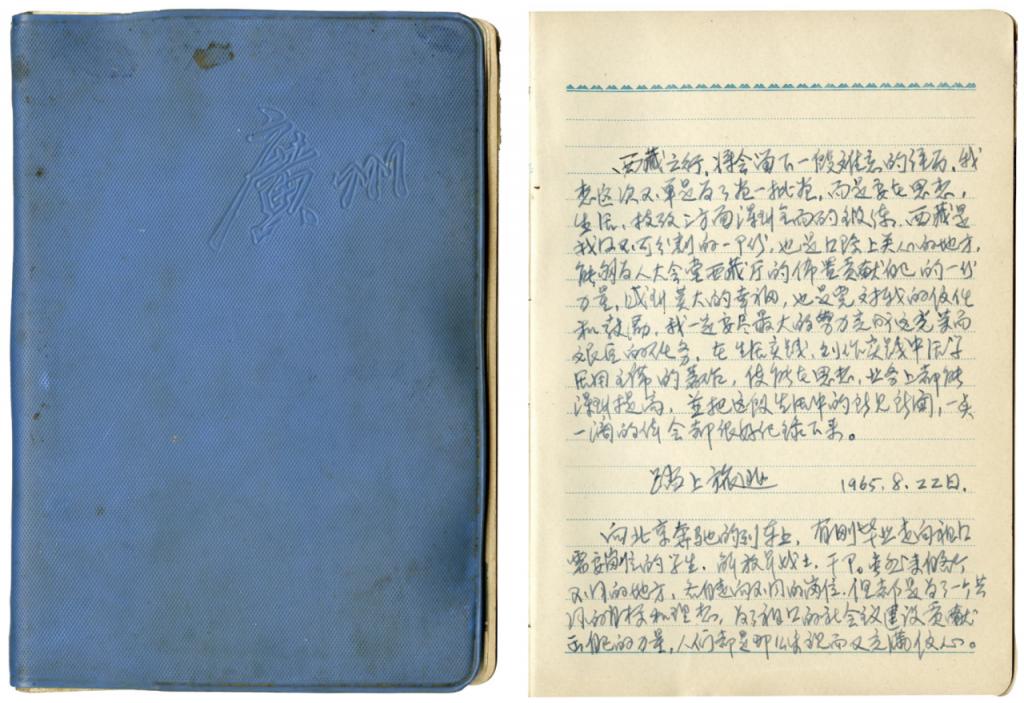 廣州
西藏之行，将会留下一段难忘的经历，我
想这次不单是为了卷一批卷，而是要在思想，
生活，技效三方面得到全面的锻练。西藏是
我国不可分割的一部份，也是
能够为人大会堂西藏厅的佈置贡献自己的一份
力量，感到莫大的幸福，也是党对我的信任
和鼓励，我一定要尽最大的努力完成这光荣而
艰巨的任务，在生活实践，创作实践中活学
活用主席的著作，使能在思想，业务上都能
得到提高，並把这段生活中的所见所闻，一点
一滴的体会都很好纪录下来。
踏上旅途 1965.8.22日.
向北京奔驰的列车上，有刚毕业走向祖国
需要岗位的学生，解放军战士，干部。
不同的地方，走向不同的岗位，但都是为了一个共
同的目标和理想，为了祖国的社会主义建设贡献
自己的力量，人们都是那么乐观而又充满信心。